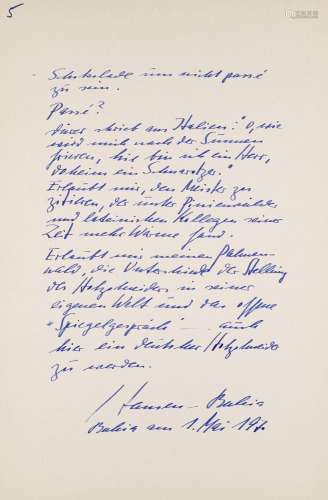 5
- Schublade um nicht passé
zu sein.
Passé?
Dürer schrieb aus Italien: "O, wie
wird mich nach der Sunnen
frieren, hie bin ich ein Herr,
daheim ein Schmarotzer."
Erlaubt mir, den Meister zu
zitieren, der unter
und lateinischen Kollegen seiner
Zeit mehr Wärme fand.
Erlaubt mir meinen Palmen-
wald, die Unterschiede der Stellung
des Holzschneiders in seiner
eigenen Welt und das offene
"Spiegelgespräch" - auch
hier ein deutscher Holzschneider
zu werden.
Hansen - Bahia
Bahia am 1. Mai